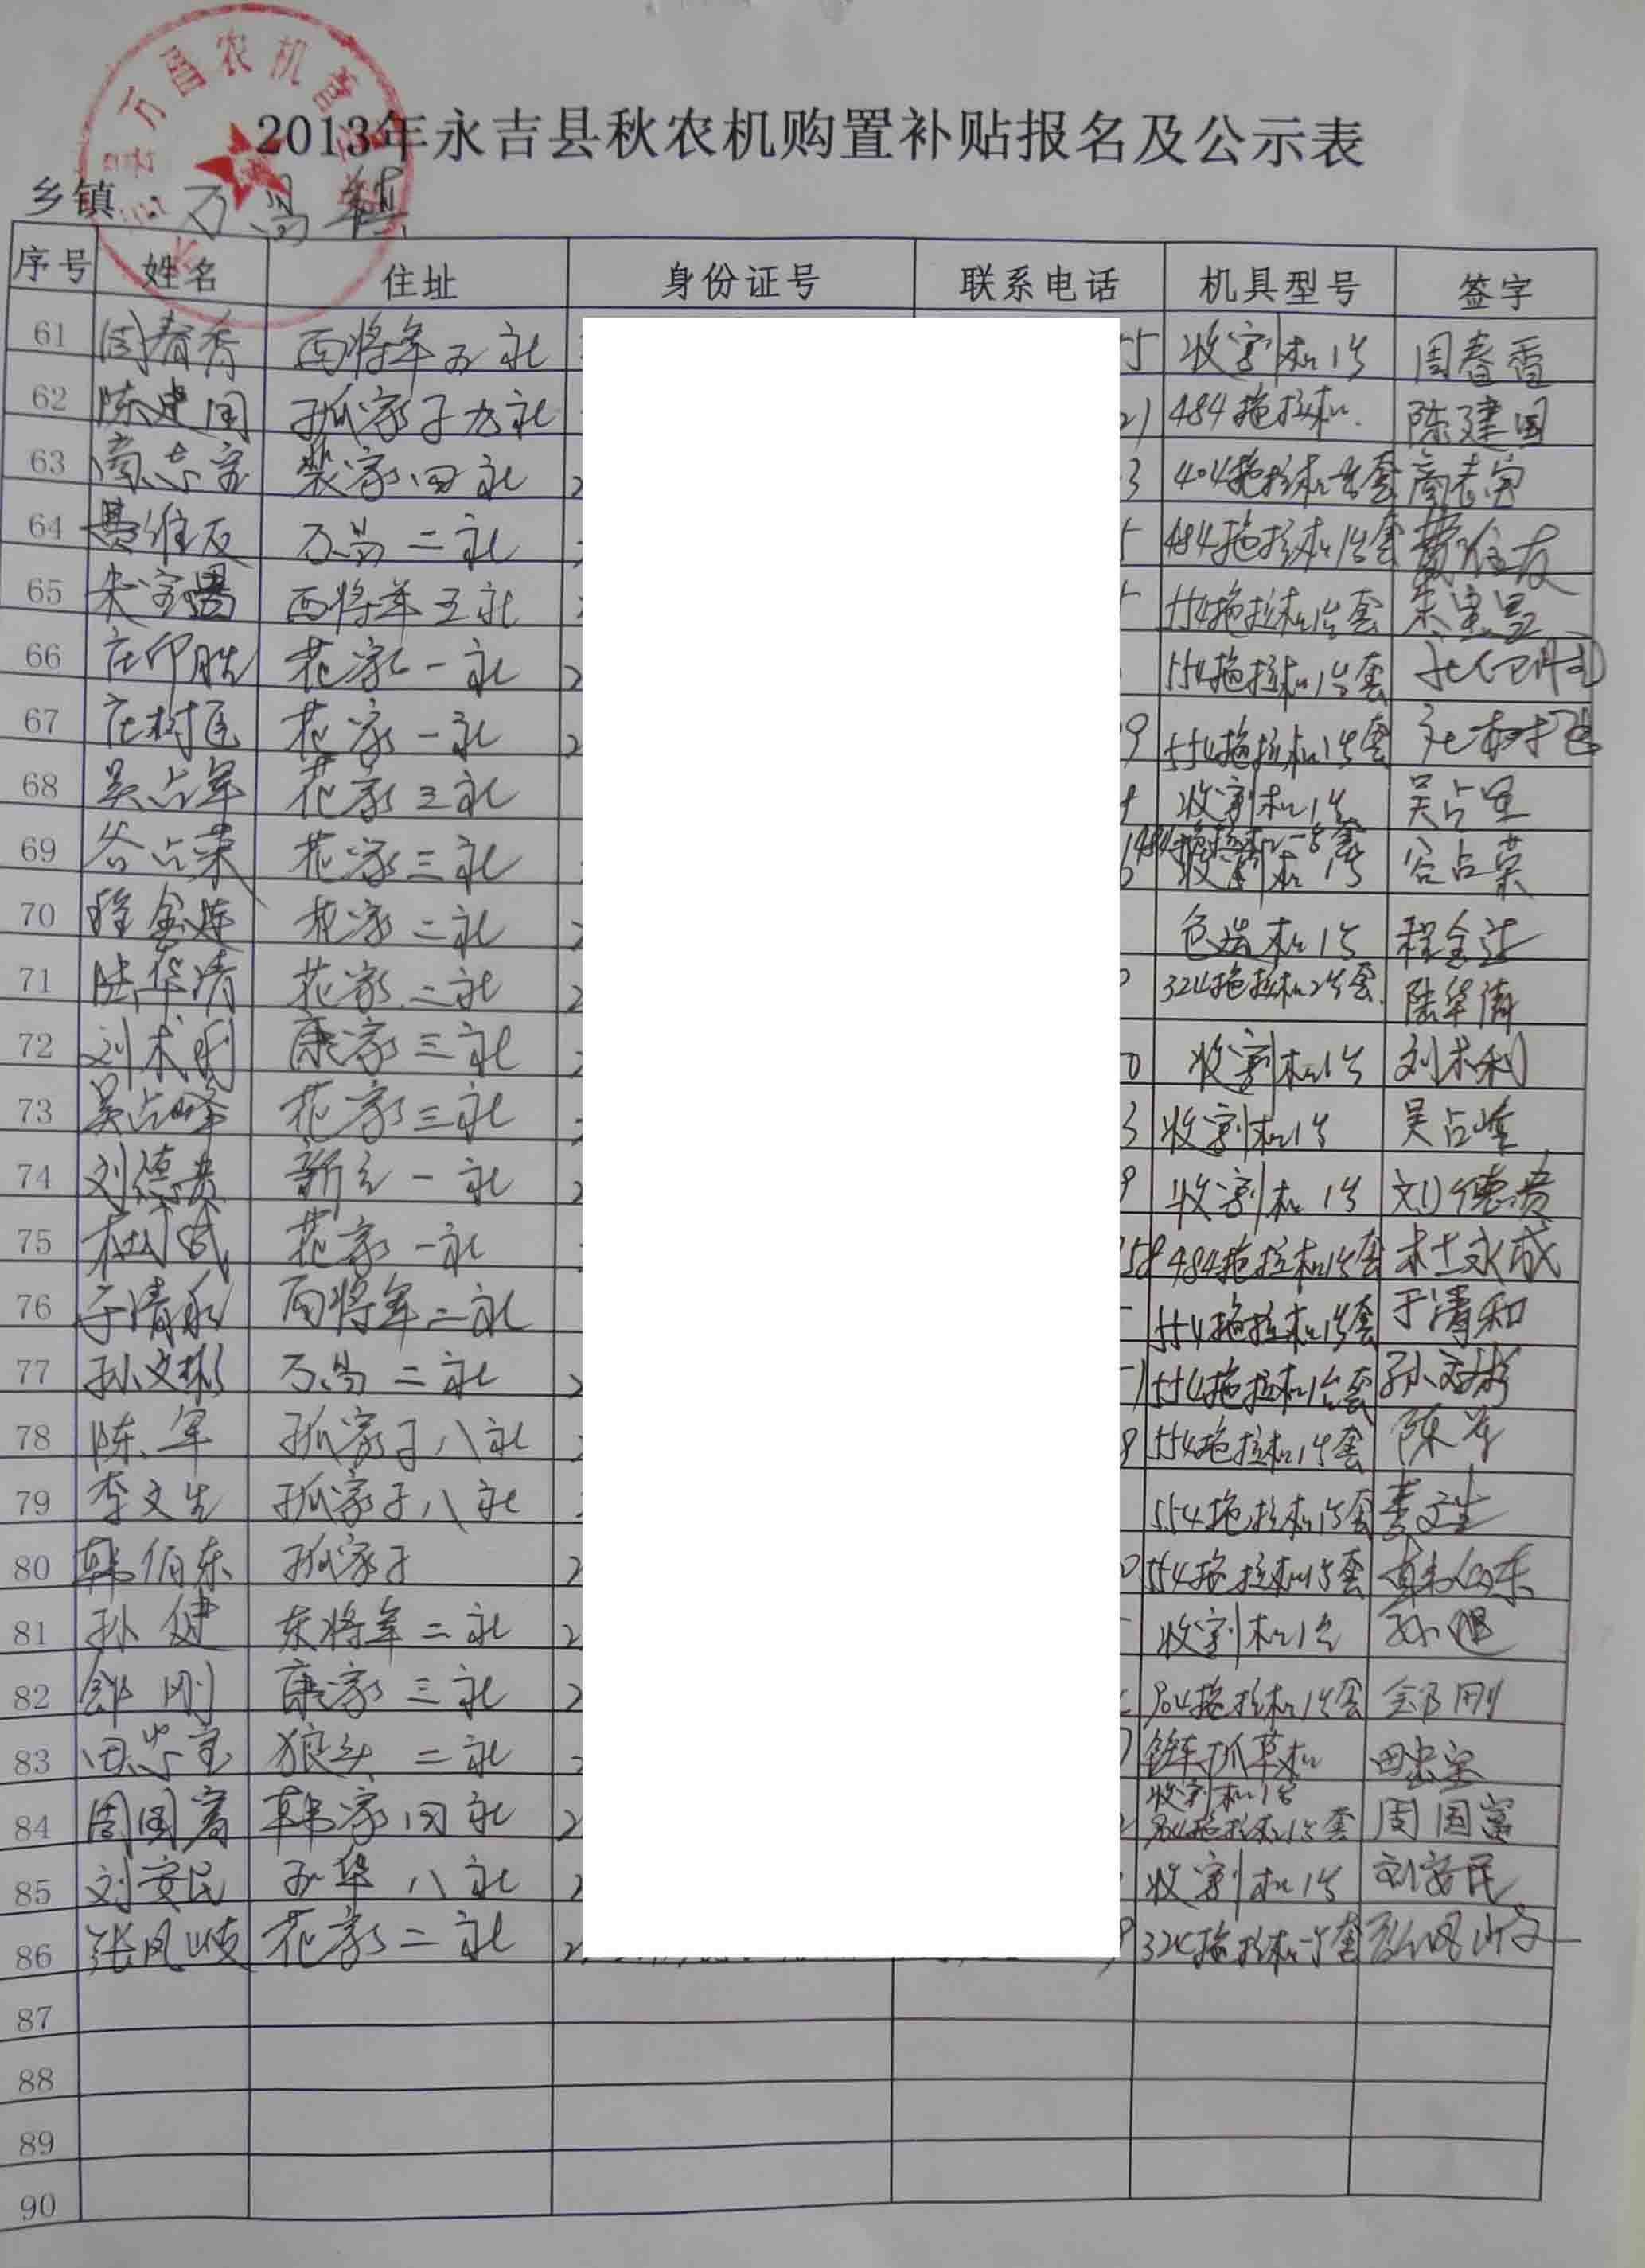 万昌农机管
2013年永吉县秋农机购置补贴报名及公示表
乡镇:万昌镇
序号 姓名 住址 身份证号 联系电话 机具型号 签字
61 周春香 西将军五社 55 收割机1台 周春香
62 陈建国 孤家子九社 21 484拖拉机. 陈建国
63 裴家四社 3 404拖拉机 套
64 费维友 万昌二社 5 484拖拉机1台套 费维友
65 宋宝昌 西将军五社 554拖拉机1台套
66 庄印胜 花家一社 2 554拖拉机1台套
67 庄树 花家一社 2 9 554拖拉机1台套 庄树
68 吴占军 花家三社 收割机1台 吴占军
69 谷占荣 花家三社 484拖拉机一台套 收割机1台 谷占荣
70 程金 花家二社 机1台 程金
71 陆华清 花家二社 2 324拖拉机2台套. 陆华清
72 刘术利 康家三社 0 收割机1台 刘术利
73 吴占峰 花家三社 3 收割机1台 吴占峰
74 刘德贵 新立一社 9 收割机1台 刘德贵
75 杜永成 花家一社 58 484拖拉机1台套 杜永成
76 于清和 西将军二社 554拖拉机1台套 于清和
77 孙文彬 万昌二社 554拖拉机1台套 孙文彬
78 陈军 孤家子八社 554拖拉机1台套 陈军
79 李文生 孤家子八社 554拖拉机1台套 李文生
80 韩伯东 孤家子 2 0 554拖拉机1台套 韩伯东
81 孙健 东将军二社 2 收割机1台
82 刚 康家三社 2 904拖拉机1台套 刚
83 田忠宝 狼头二社 抓草机 田忠宝
84 周国富 韩家四社 2 收割机1台 拖拉机1台套 周国富
85 刘安民 孙华八社 收割机1台 刘安民
86 张凤岐 花家二社 324拖拉机一台套 张凤岐
87
88
89
90